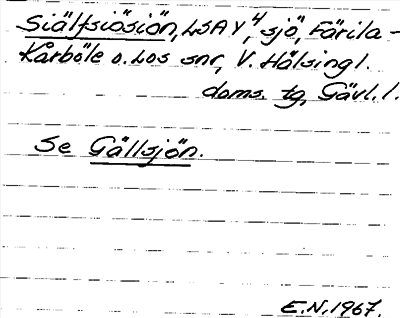 Siälfsiösiön, LSA Y4, sjö, Färila-
Kårböle o. Los snr, V. Hälsingl.
doms. tg, Gävl. l.
Se Gällsjön.
E.N. 1967.